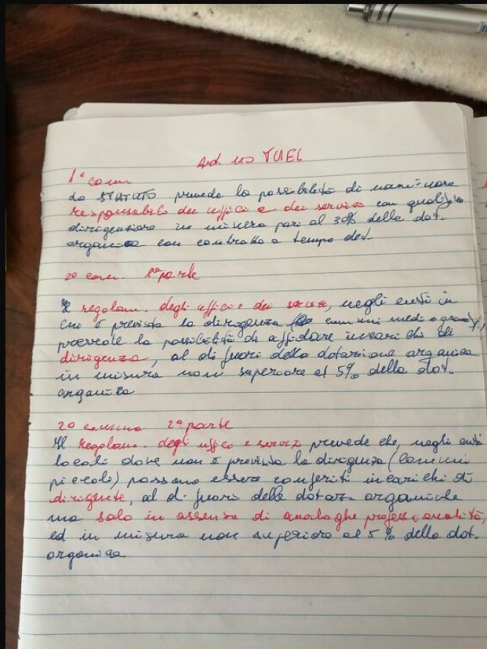 Art. 110 TUEL
1° com
Lo STATUTO prevede la possibilità di nominare
responsabile dei uffici e dei servizi con qualifica
dirigenziale in misura pari al 30% della dot.
organica con contratto a tempo det.
2° com. 1° parte
Il regolam. degli uffici e dei servizi, negli enti in
cui è prevista la dirigenza comuni medi e grandi,
prevede la possibilità di affidare incarichi di
dirigenza, al di fuori della dotazione organica
in misura non superiore al 5% della dot.
organica
2° comma 2° parte
Il regolam. degli uffici e servizi prevede che, negli enti
locali dove non è prevista la dirigenza (comuni
piccoli) possano essere conferiti incarichi di
dirigente, al di fuori della dotaz. organiche
ma solo in assenza di analoghe profess.
ed in misura non superiore al 5% della dot.
organica